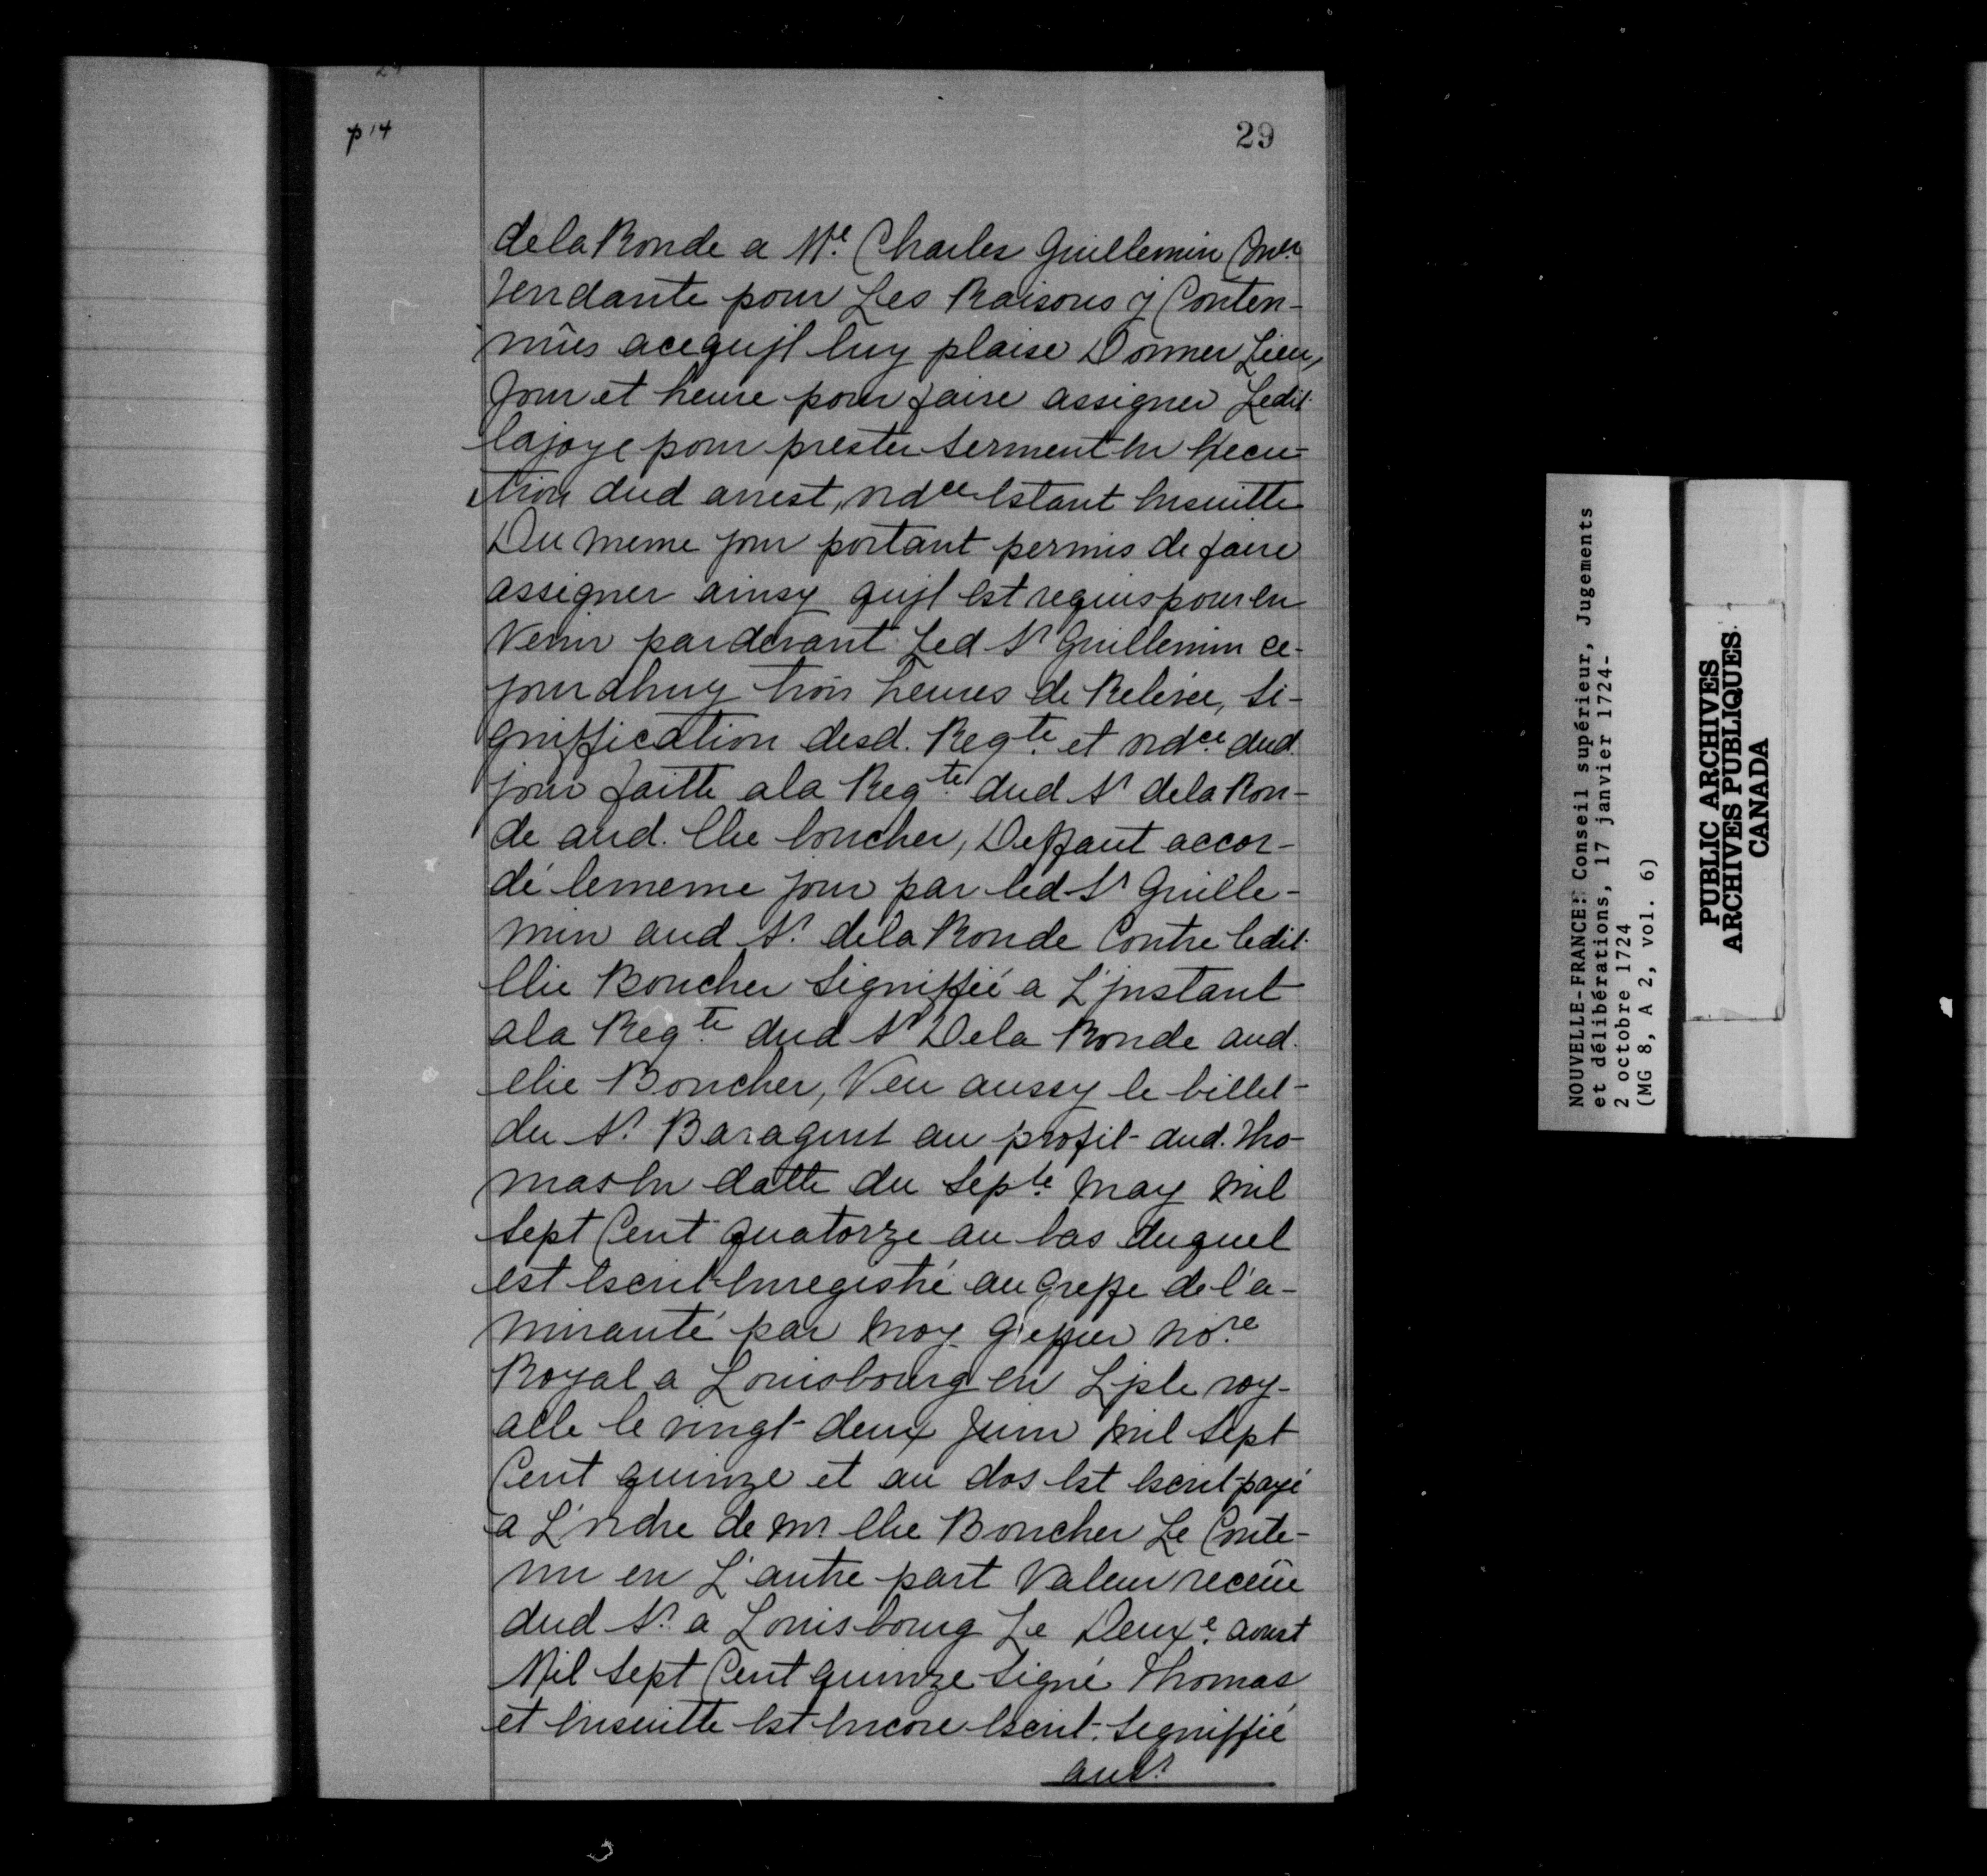 p 14
29
dela Ronde a Me. Charles Guillemin Con.er
tendante pour Les Raisons y Conten-
nües acequjl luy plaise Donner Lieu,
Jour et heure pour faire assigner Ledit
lajoye pour prester serment En Execu-
tion dud arrest, ordce Estant Ensuitte
Du meme jour portant permis de faire
assigner ainsy qujl Est requis pour en
Venir pardevant Led Sr Guillemin ce-
jourdhuy trois heures de Relevée, Si-
gniffication desd. Reqte. et ordce. dud.
jour faitte ala Reqte. dud Sr dela Ron-
de aud. Elie boucher, Deffaut accor-
dé lememe jour par led Sr Guille-
min aud Sr. dela Ronde Contre ledit
Elie Boucher Signiffié a L'jnstant
ala Reqte. dud Sr Dela Ronde aud.
Elie Boucher, Veu aussy le billet
du Sr. Baragent au profit dud. Tho-
mas En datte du Septe. May Mil
Sept Cent quatorze au bas duquel
est Escrit Enregistré au Greffe de l'a-
mirauté par Moy greffier nore.
Royal a Louisbourg en L'jsle roy-
alle le vingt deux Juin Mil Sept
Cent quinze et au dos Est Escrit payé
a L'ordre de Mr Elie Boucher Le Conte-
nu en L'autre part Valeur receüe
dud Sr. a Louisbourg Le Deuxe. aoust
Mil Sept Cent quinze Signé Thomas
et Ensuitte Est Encore Escrit. Signiffié
au Sr.
NOUVELLE-FRANCE: Conseil supérieur, Jugements
et délibérations, 17 janvier 1724-
2 octobre 1724
(MG 8, A 2, vol. 6)
PUBLIC ARCHIVES
ARCHIVES PUBLIQUES
CANADA